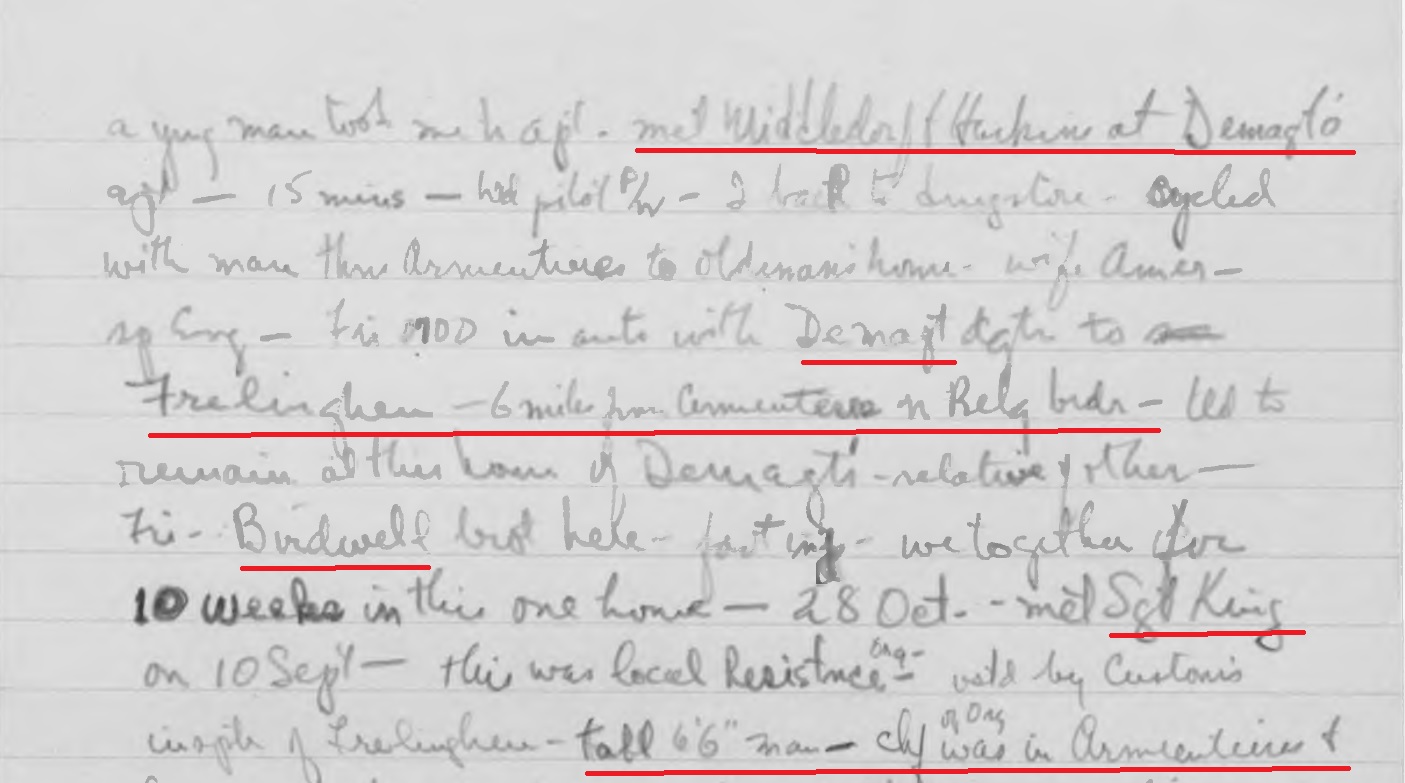 a yng man took me to apt. met Middledorf & Harkins at Demagt's
apt — 15 mins — had pilot P/W — I back to drugstore - cycled
with man thru Armentieres to old man's home - wife Amer —
sp Eng — Fri 0900 in auto with Demagt dgtr to
Frelinghen — 6 miles from Armentieres on Belg brdr — to
remain at this home of Demagt's - relative of other —
Fri - Birdwell brot here - together for
10 weeks in this one home — 28 Oct. - met Sgt King
on 10 Sept — this was local Resistnce org — by Customs
of Frelinghen - tall 6'6" man — chf of Org was in Armentieres &